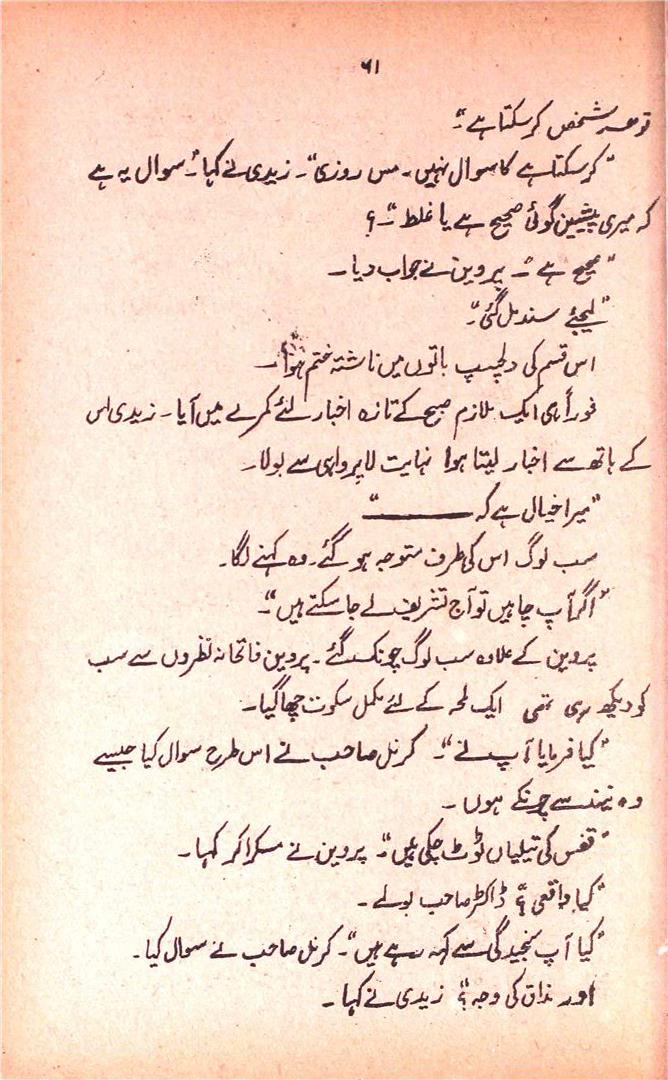 ۶۱
تو ہر شخص کر سکتا ہے"۔
"کر سکتا ہے کا سوال نہیں۔ مس روزی"۔ زیدی نے کہا"۔ سوال یہ ہے
کہ میری پیشین گوئی صحیح ہے یا غلط"۔؟
"صحیح ہے"۔ پروین نے جواب دیا۔
"لیجئے سند مل گئی"۔
اس قسم کی دلچسپ باتوں میں ناشتہ ختم ہوا۔
فوراً ہی ایک ملازم صبح کے تازہ اخبار لئے کمرے میں آیا۔ زیدی اس
کے ہاتھ سے اخبار لیتا ہوا نہایت لاپرواہی سے بولا۔
"میرا خیال ہے کہ ــــــــــــ"
سب لوگ اس کی طرف متوجہ ہو گئے۔ وہ کہنے لگا۔
"اگر آپ چاہیں تو آج تشریف لے جا سکتے ہیں"۔
پروین کے علاوہ سب لوگ چونک گئے۔ پروین فاتحانہ نظروں سے سب
کو دیکھ رہی تھی ایک لمحہ کے لئے مکمل سکوت چھا گیا۔
"کیا فرمایا آپ نے"۔ کرنل صاحب نے اس طرح سوال کیا جیسے
وہ نیند سے چونکے ہوں۔
"قفس کی تیلیاں ٹوٹ چکی ہیں"۔ پروین نے مسکرا کر کہا۔
"کیا واقعی"؟ ڈاکٹر صاحب بولے۔
"کیا آپ سنجیدگی سے کہہ رہے ہیں"۔ کرنل صاحب نے سوال کیا۔
"اور مذاق کی وجہ"؟ زیدی نے کہا۔